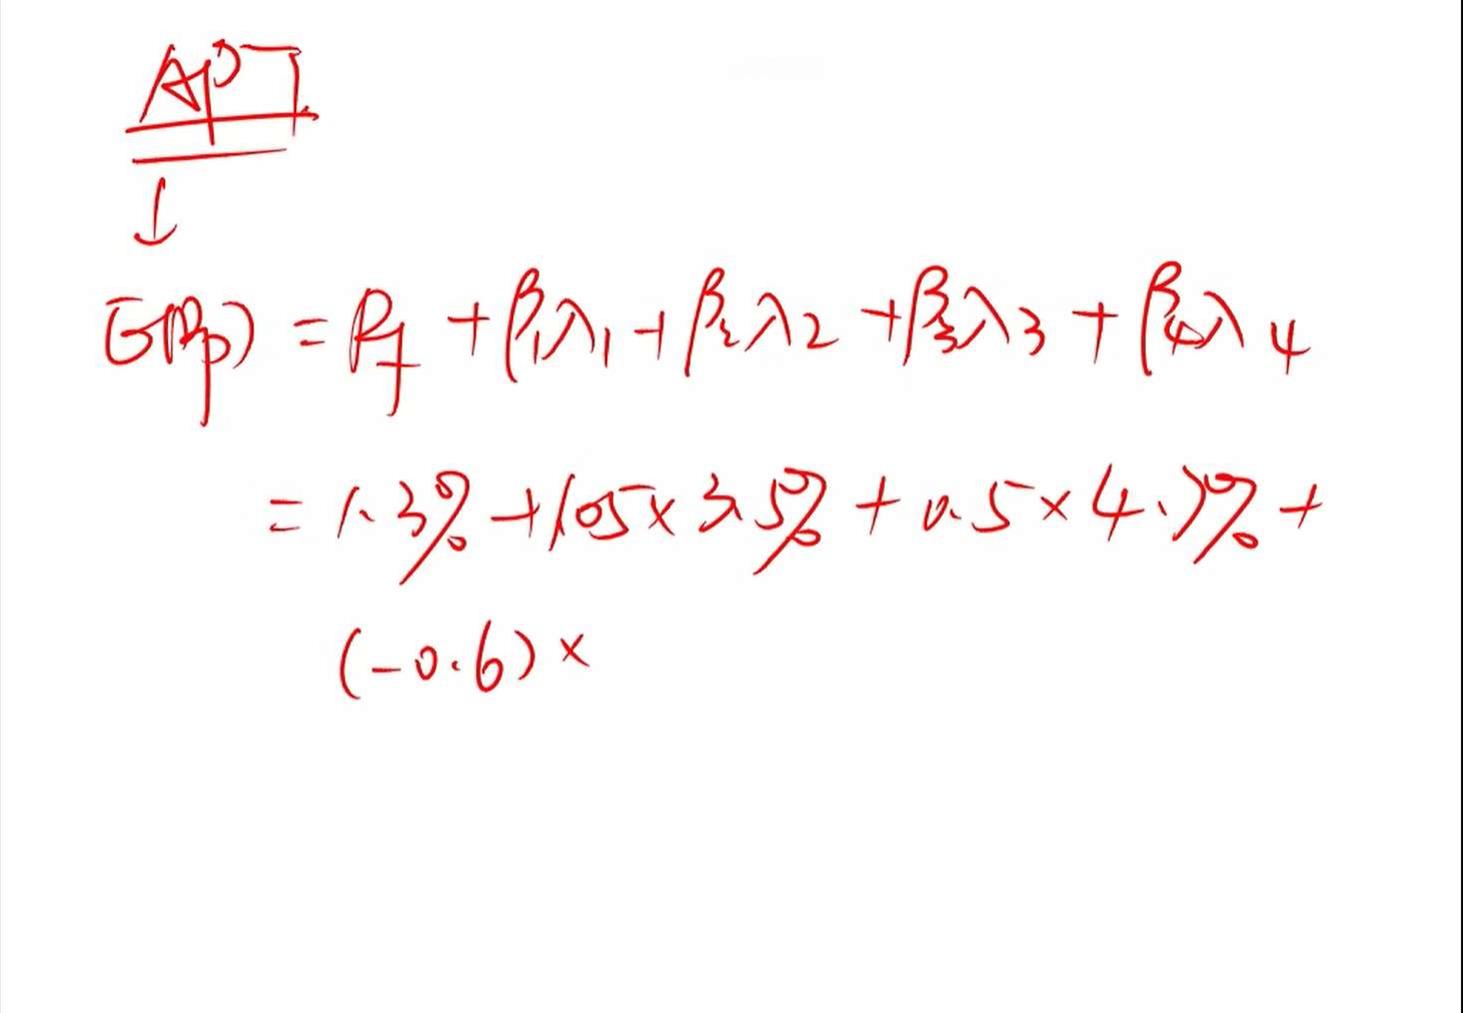 APT
↓
E(Rp) = Rf + β1λ1 + β2λ2 + β3λ3 + β4λ4
= 1.3% + 1.05 × 3.5% + 0.5 × 4.7% +
(-0.6) ×